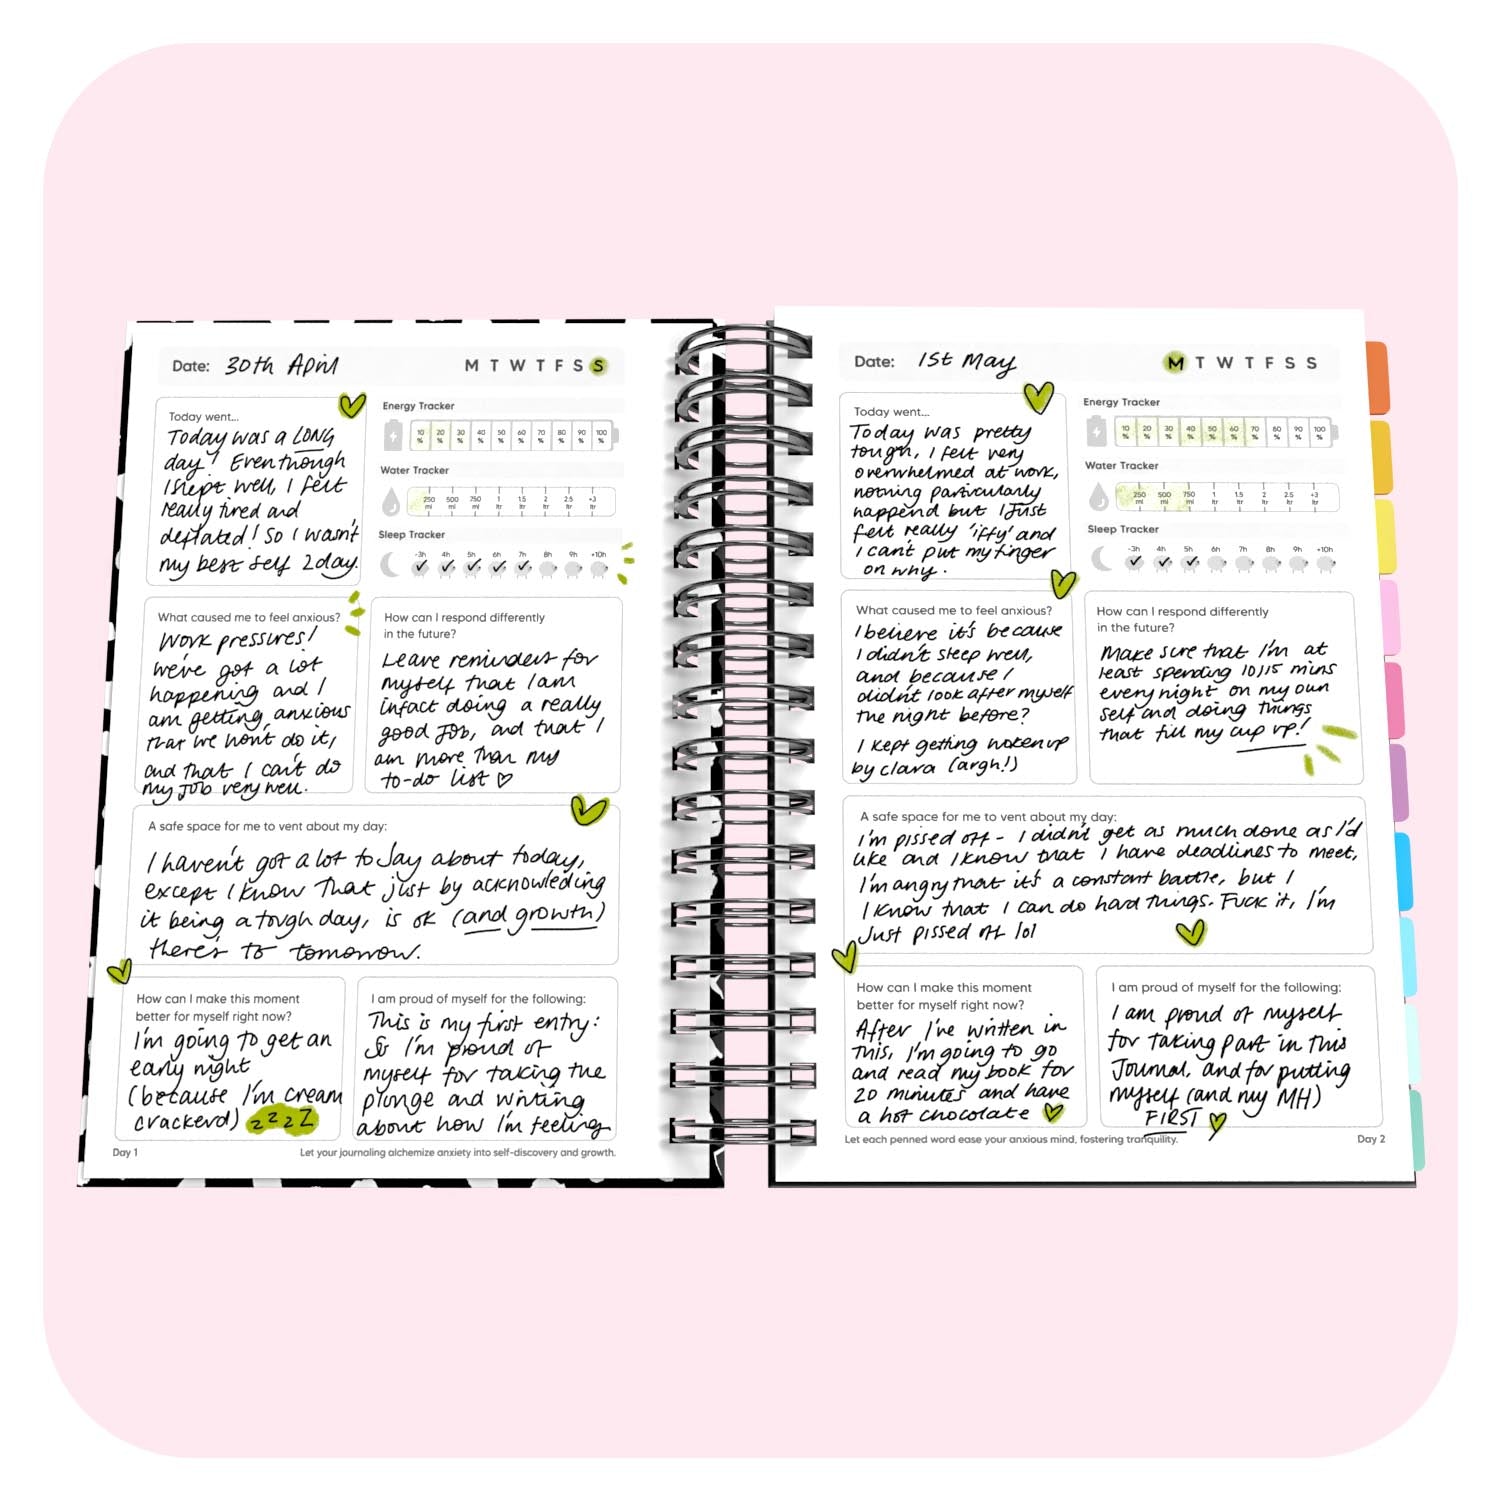 Date: 30th April
M T W T F S S
Today went...
Today was a LONG
day! Even though
I slept well, I felt
really tired and
deflated! So I wasn't
my best self 2day.
Energy Tracker
10 % 20 % 30 % 40 % 50 % 60 % 70 % 80 % 90 % 100 %
Water Tracker
250 ml 500 ml 750 ml 1 ltr 1.5 ltr 2 ltr 2.5 ltr +3 ltr
Sleep Tracker
-3h 4h 5h 6h 7h 8h 9h +10h
What caused me to feel anxious?
Work pressures!
We've got a lot
happening and I
am getting anxious
that we won't do it,
and that I can't do
my job very well.
How can I respond differently
in the future?
Leave reminders for
myself that I am
infact doing a really
good job, and that I
am more than my
to-do list
A safe space for me to vent about my day:
I haven't got a lot to say about today,
except I know that just by acknowleding
it being a tough day, is ok (and growth)
there's to tomorrow.
How can I make this moment
better for myself right now?
I'm going to get an
early night
(because I'm cream
crackerd) z z z Z
I am proud of myself for the following:
This is my first entry:
So I'm proud of
myself for taking the
plunge and writing
about how I'm feeling
Day 1
Let your journaling alchemize anxiety into self-discovery and growth.
Date: 1st May
M T W T F S S
Today went...
Today was pretty
tough, I felt very
overwhelmed at work,
nothing particularly
happend but I just
felt really 'iffy' and
I can't put my finger
on why.
Energy Tracker
10 % 20 % 30 % 40 % 50 % 60 % 70 % 80 % 90 % 100 %
Water Tracker
250 ml 500 ml 750 ml 1 ltr 1.5 ltr 2 ltr 2.5 ltr +3 ltr
Sleep Tracker
-3h 4h 5h 6h 7h 8h 9h +10h
What caused me to feel anxious?
I believe it's because
I didn't sleep well,
and because I
didn't look after myself
the night before?
I kept getting woken up
by clara (argh!)
How can I respond differently
in the future?
Make sure that I'm at
least spending 10/15 mins
every night on my own
self and doing things
that fill my cup up!
A safe space for me to vent about my day:
I'm pissed off - I didn't get as much done as I'd
like and I know that I have deadlines to meet,
I'm angry that it's a constant battle, but I
I know that I can do hard things. Fuck it, I'm
Just pissed off lol
How can I make this moment
better for myself right now?
After I've written in
this, I'm going to go
and read my book for
20 minutes and have
a hot chocolate
I am proud of myself for the following:
I am proud of myself
for taking part in this
Journal, and for putting
myself (and my MH)
FIRST
Let each penned word ease your anxious mind, fostering tranquility.
Day 2